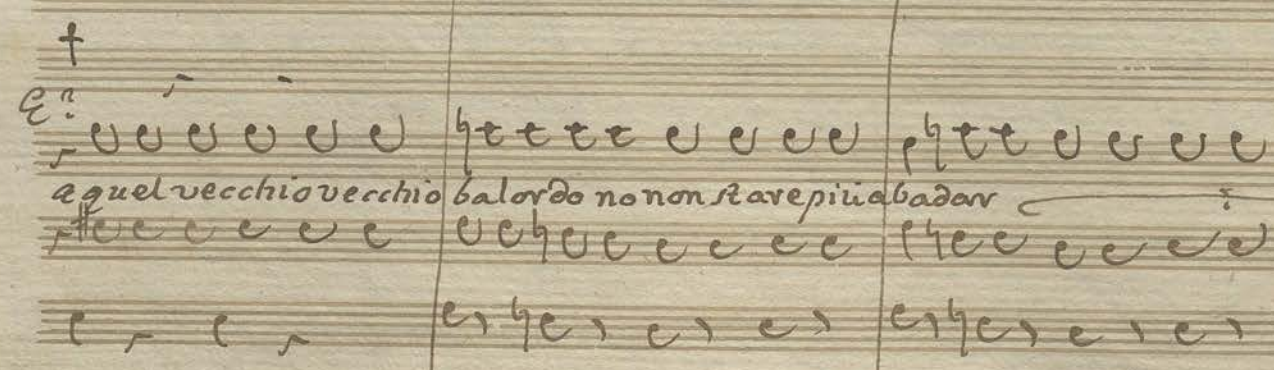 a quel vecchio vecchio balordo no non stare più a badar